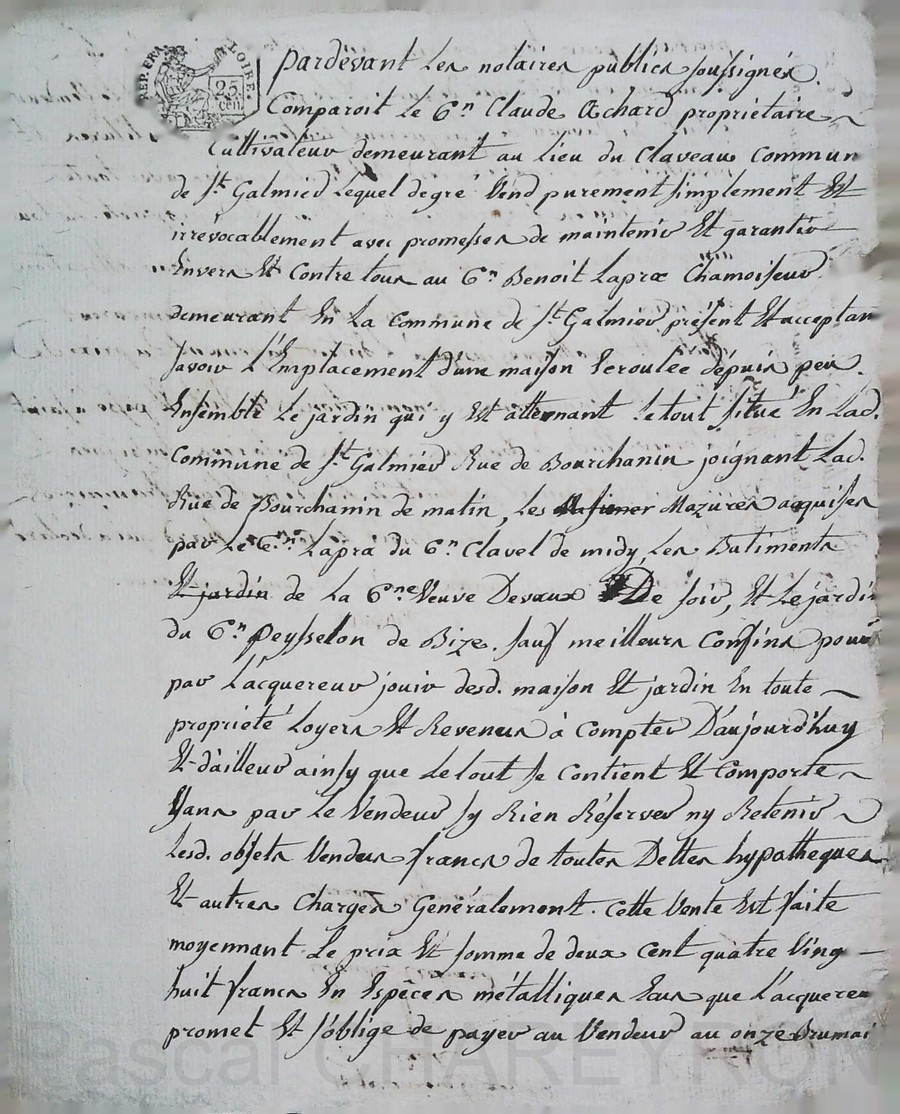 REP. FRA. LOIRE.
25 cen.
pardevant Les notaires publics soussignés.
Comparoit Le Cn. Claude Achard propriétaire
Cultivateur demeurant au Lieu du Claveau Commun
de St. Galmier Lequel de gré Vend purement simplement Et
irrévocablement avec promesses de maintenir Et garantir
Envers Et Contre tous au Cn. Benoit Lapra Chamoiseur
demeurant En La Commune de St. Galmier présent Et acceptan
savoir L'Emplacement d'une maison Ecroulée depuis peu.
Ensemble Le jardin qui y Est attenant Le tout situé En Lad.
Commune de St. Galmier Rue de Bourchanin joignant Lad.
Rue de Bourchanin de matin, Les Mazures acquises
par Le Cn. Lapra du Cn. Clavel de midy Les Batiments
Et jardin de La Cne. Veuve Devaux De soir, Et Le jardin
du Cn. Peysselon de Bize. sauf meilleurs Confins pour
par L'acquereur jouir desd. maison Et jardin En toute
propriété Loyers Et Revenus à Compter D'aujourd'huy
Et d'ailleur ainsy que Le tout se Contient Et Comporte
sans par Le Vendeur sy Rien Réserver ny Retenir
Lesd. objets Vendus francs de toutes Dettes hypotheques
Et autres Charges Généralement. Cette Vente Est faite
moyennant Le prix Et somme de deux Cent quatre Ving
huit francs En Espèces métalliques Eaux que L'acquereu
promet Et s'oblige de payer au Vendeur au onze Brumai
Pascal CHAREYRON